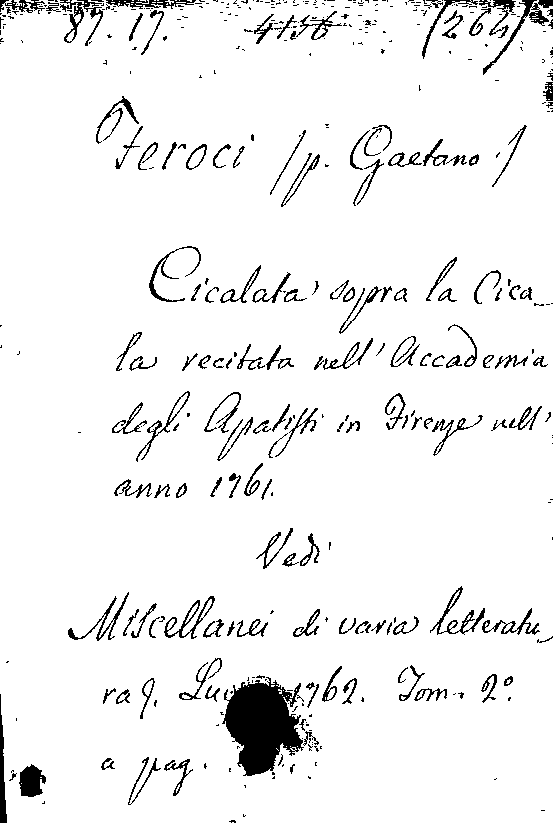 87. 17. 4156 (264)
Feroci /p. Gaetano./
Cicalata sopra la Cica_
la recitata nell' Accademia
degli Apatisti in Firenze nell'
anno 1761.
Vedi
Miscellanei di varia letteratu_
ra. 1762. Tom. 2º.
a pag.